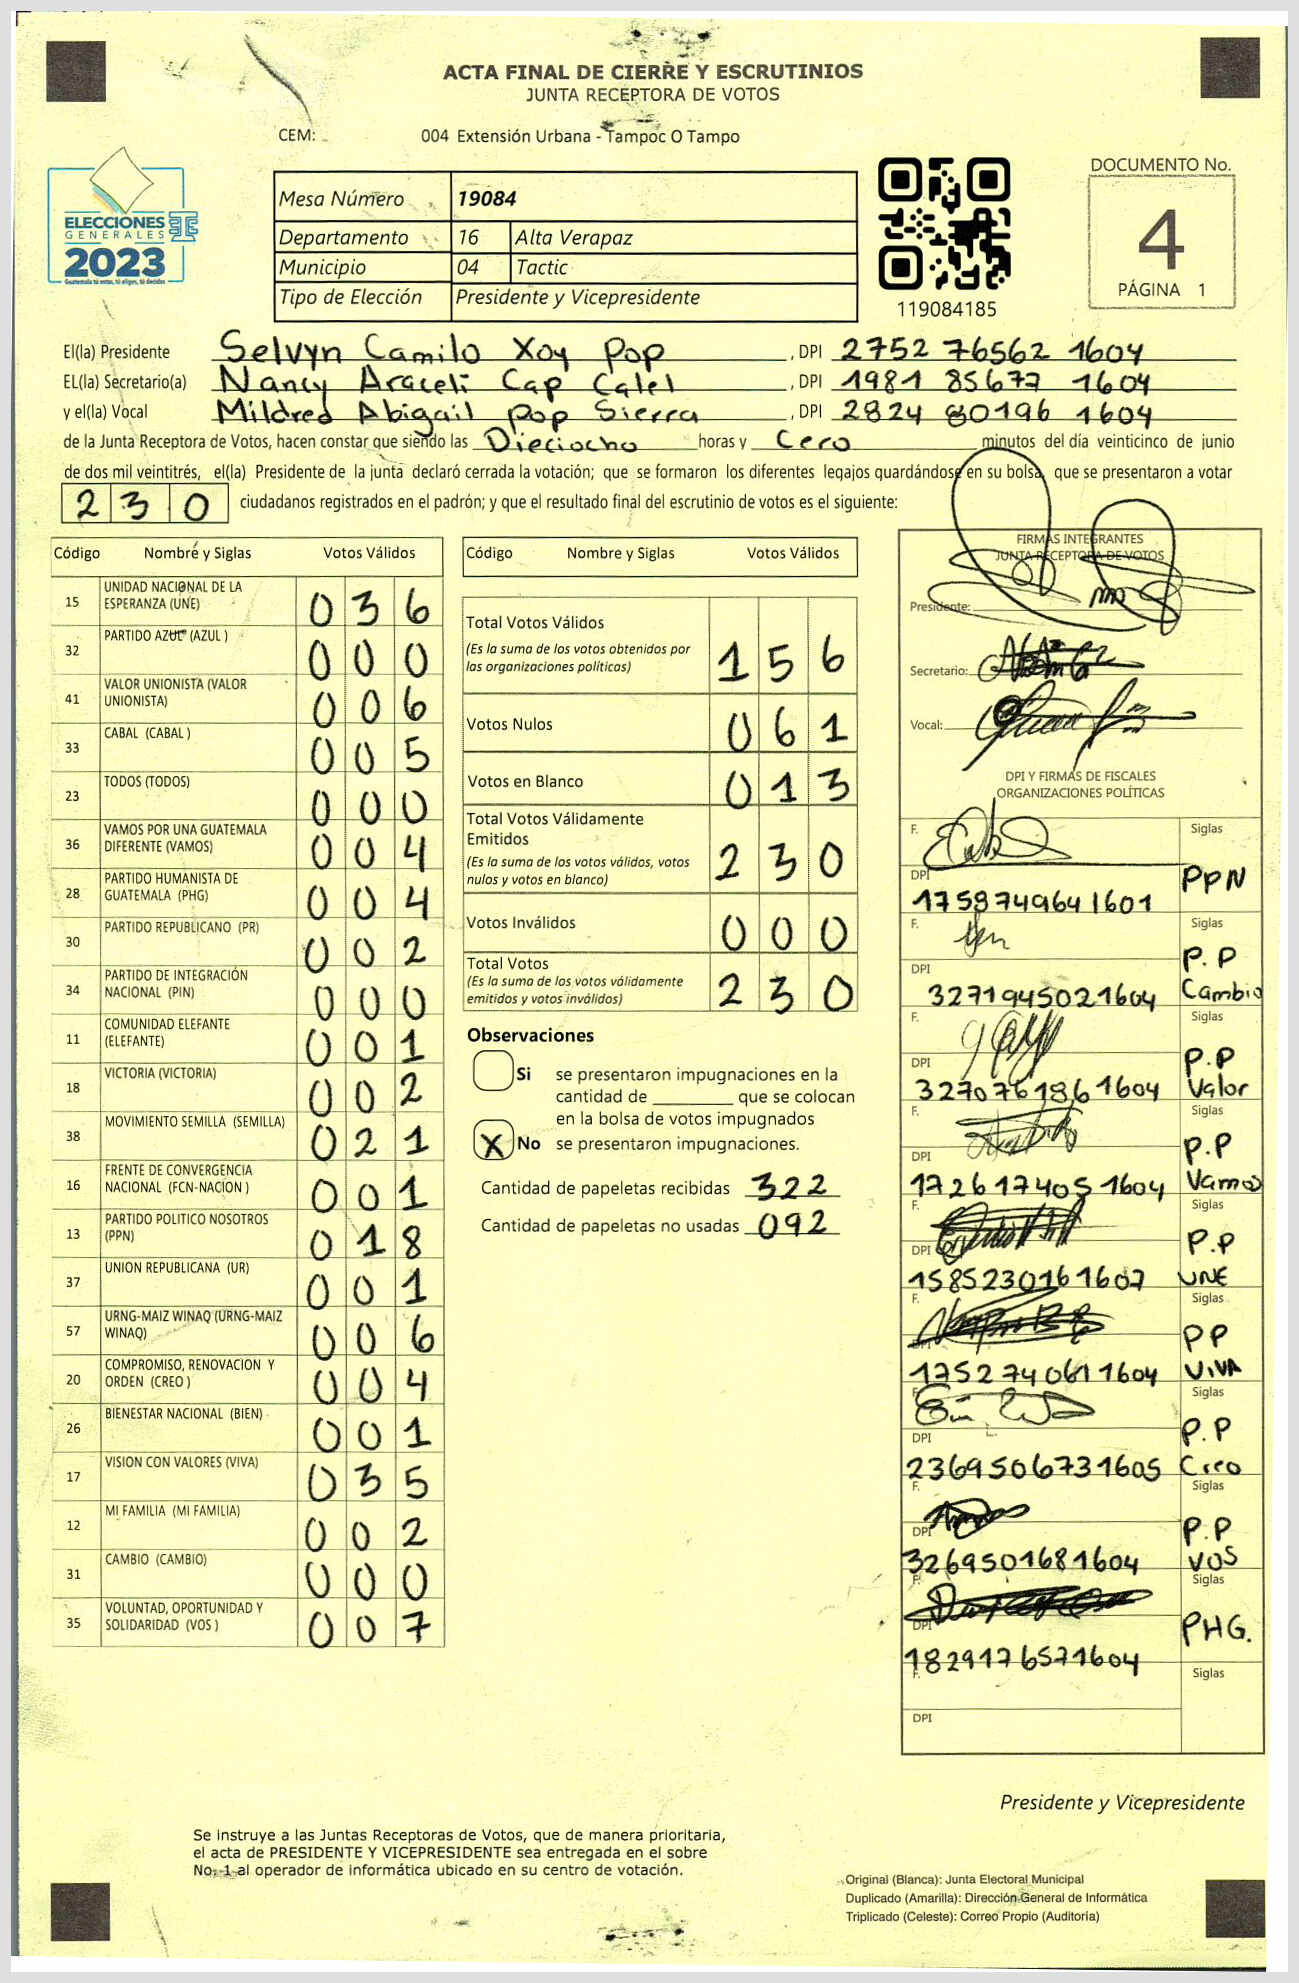 ACTA FINAL DE CIERRE Y ESCRUTINIOS
JUNTA RECEPTORA DE VOTOS
CEM: 004 Extensión Urbana - Tampoc O Tampo
ELECCIONES
GENERALES
2023
Guatemala tú votas, tú eliges, tú decides
Mesa Número 19084
Departamento 16 Alta Verapaz
Municipio 04 Tactic
Tipo de Elección Presidente y Vicepresidente
119084185
DOCUMENTO No.
4
PÁGINA 1
El(la) Presidente Selvyn Camilo Xoy Pop , DPI 2752 76562 1604
EL(la) Secretario(a) Nancy Araceli Cap Calel , DPI 1981 85677 1604
y el(la) Vocal Mildred Abigail Pop Sierra , DPI 2824 80196 1604
de la Junta Receptora de Votos, hacen constar que siendo las Dieciocho horas y Cero minutos del día veinticinco de junio
de dos mil veintitrés, el(la) Presidente de la junta declaró cerrada la votación; que se formaron los diferentes legajos guardándose en su bolsa, que se presentaron a votar
230 ciudadanos registrados en el padrón; y que el resultado final del escrutinio de votos es el siguiente:
Código Nombre y Siglas Votos Válidos
15 UNIDAD NACIONAL DE LA
ESPERANZA (UNE) 036
32 PARTIDO AZUL (AZUL ) 000
41 VALOR UNIONISTA (VALOR
UNIONISTA) 006
33 CABAL (CABAL ) 005
23 TODOS (TODOS) 000
36 VAMOS POR UNA GUATEMALA
DIFERENTE (VAMOS) 004
28 PARTIDO HUMANISTA DE
GUATEMALA (PHG) 004
30 PARTIDO REPUBLICANO (PR) 002
34 PARTIDO DE INTEGRACIÓN
NACIONAL (PIN) 000
11 COMUNIDAD ELEFANTE
(ELEFANTE) 001
18 VICTORIA (VICTORIA) 002
38 MOVIMIENTO SEMILLA (SEMILLA) 021
16 FRENTE DE CONVERGENCIA
NACIONAL (FCN-NACION ) 001
13 PARTIDO POLITICO NOSOTROS
(PPN) 018
37 UNION REPUBLICANA (UR) 001
57 URNG-MAIZ WINAQ (URNG-MAIZ
WINAQ) 006
20 COMPROMISO, RENOVACION Y
ORDEN (CREO ) 004
26 BIENESTAR NACIONAL (BIEN) 001
17 VISION CON VALORES (VIVA) 035
12 MI FAMILIA (MI FAMILIA) 002
31 CAMBIO (CAMBIO) 000
35 VOLUNTAD, OPORTUNIDAD Y
SOLIDARIDAD (VOS ) 007
Código Nombre y Siglas Votos Válidos
Total Votos Válidos
(Es la suma de los votos obtenidos por
las organizaciones políticas) 156
Votos Nulos 061
Votos en Blanco 013
Total Votos Válidamente
Emitidos
(Es la suma de los votos válidos, votos
nulos y votos en blanco) 230
Votos Inválidos 000
Total Votos
(Es la suma de los votos válidamente
emitidos y votos inválidos) 230
Observaciones
Si se presentaron impugnaciones en la
cantidad de ________ que se colocan
en la bolsa de votos impugnados
X No se presentaron impugnaciones.
Cantidad de papeletas recibidas 322
Cantidad de papeletas no usadas 092
FIRMAS INTEGRANTES
JUNTA RECEPTORA DE VOTOS
Presidente:
Secretario:
Vocal:
DPI Y FIRMAS DE FISCALES
ORGANIZACIONES POLÍTICAS
F. Siglas
DPI PPN
1758749641601
F. Siglas
DPI P.P
3271945021604 Cambio
F. Siglas
DPI P.P
3270761861604 Valor
F. Siglas
DPI P.P
1726174051604 Vamos
F. Siglas
DPI P.P
1585230161607 UNE
F. Siglas
DPI PP
1752740611604 VIVA
F. Siglas
DPI P.P
2369506731605 Creo
F. Siglas
DPI P.P
3269501681604 VOS
F. Siglas
DPI PHG.
1829176571604
F. Siglas
DPI
Presidente y Vicepresidente
Se instruye a las Juntas Receptoras de Votos, que de manera prioritaria,
el acta de PRESIDENTE Y VICEPRESIDENTE sea entregada en el sobre
No. 1 al operador de informática ubicado en su centro de votación.
Original (Blanca): Junta Electoral Municipal
Duplicado (Amarilla): Dirección General de Informática
Triplicado (Celeste): Correo Propio (Auditoría)